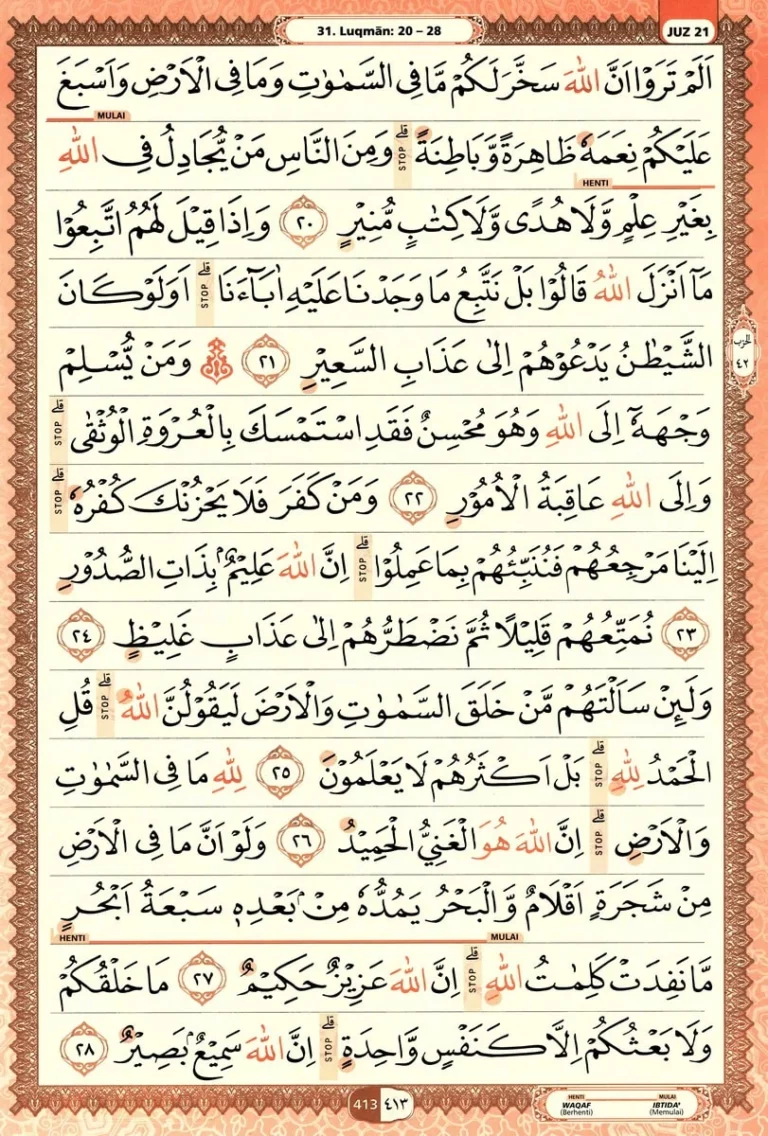 31. Luqmān: 20 – 28
JUZ 21
اَلَمْ تَرَوْا اَنَّ اللّٰهَ سَخَّرَ لَكُمْ مَّا فِى السَّمٰوٰتِ وَمَا فِى الْاَرْضِ وَاَسْبَغَ
MULAI
عَلَيْكُمْ نِعَمَهٗ ظَاهِرَةً وَّبَاطِنَةً ۗ وَمِنَ النَّاسِ مَنْ يُّجَادِلُ فِى اللّٰهِ
STOP
HENTI
بِغَيْرِ عِلْمٍ وَّلَا هُدًى وَّلَا كِتٰبٍ مُّنِيْرٍ ٢٠ وَاِذَا قِيْلَ لَهُمُ اتَّبِعُوْا
مَآ اَنْزَلَ اللّٰهُ قَالُوْا بَلْ نَتَّبِعُ مَا وَجَدْنَا عَلَيْهِ اٰبَاۤءَنَا ۗ اَوَلَوْ كَانَ
STOP
الشَّيْطٰنُ يَدْعُوْهُمْ اِلٰى عَذَابِ السَّعِيْرِ ٢١ وَمَنْ يُّسْلِمْ
الحزب
٤٢
وَجْهَهٗٓ اِلَى اللّٰهِ وَهُوَ مُحْسِنٌ فَقَدِ اسْتَمْسَكَ بِالْعُرْوَةِ الْوُثْقٰى ۗ
STOP
وَاِلَى اللّٰهِ عَاقِبَةُ الْاُمُوْرِ ٢٢ وَمَنْ كَفَرَ فَلَا يَحْزُنْكَ كُفْرُهٗ ۗ
STOP
اِلَيْنَا مَرْجِعُهُمْ فَنُنَبِّئُهُمْ بِمَا عَمِلُوْا ۗ اِنَّ اللّٰهَ عَلِيْمٌۢ بِذَاتِ الصُّدُوْرِ
STOP
٢٣ نُمَتِّعُهُمْ قَلِيْلًا ثُمَّ نَضْطَرُّهُمْ اِلٰى عَذَابٍ غَلِيْظٍ ٢٤
وَلَىِٕنْ سَاَلْتَهُمْ مَّنْ خَلَقَ السَّمٰوٰتِ وَالْاَرْضَ لَيَقُوْلُنَّ اللّٰهُ ۗ قُلِ
STOP
الْحَمْدُ لِلّٰهِ ۗ بَلْ اَكْثَرُهُمْ لَا يَعْلَمُوْنَ ٢٥ لِلّٰهِ مَا فِى السَّمٰوٰتِ
STOP
وَالْاَرْضِ ۗ اِنَّ اللّٰهَ هُوَ الْغَنِيُّ الْحَمِيْدُ ٢٦ وَلَوْ اَنَّ مَا فِى الْاَرْضِ
STOP
مِنْ شَجَرَةٍ اَقْلَامٌ وَّالْبَحْرُ يَمُدُّهٗ مِنْۢ بَعْدِهٖ سَبْعَةُ اَبْحُرٍ
MULAI
HENTI
مَّا نَفِدَتْ كَلِمٰتُ اللّٰهِ ۗ اِنَّ اللّٰهَ عَزِيْزٌ حَكِيْمٌ ٢٧ مَا خَلْقُكُمْ
STOP
وَلَا بَعْثُكُمْ اِلَّا كَنَفْسٍ وَّاحِدَةٍ ۗ اِنَّ اللّٰهَ سَمِيْعٌۢ بَصِيْرٌ ٢٨
STOP
413 ٤١٣
HENTI MULAI
WAQAF IBTIDA'
(Berhenti) (Memulai)